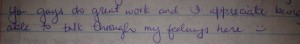 You guys do great work and I appreciate being
able to talk through my feelings here :-)